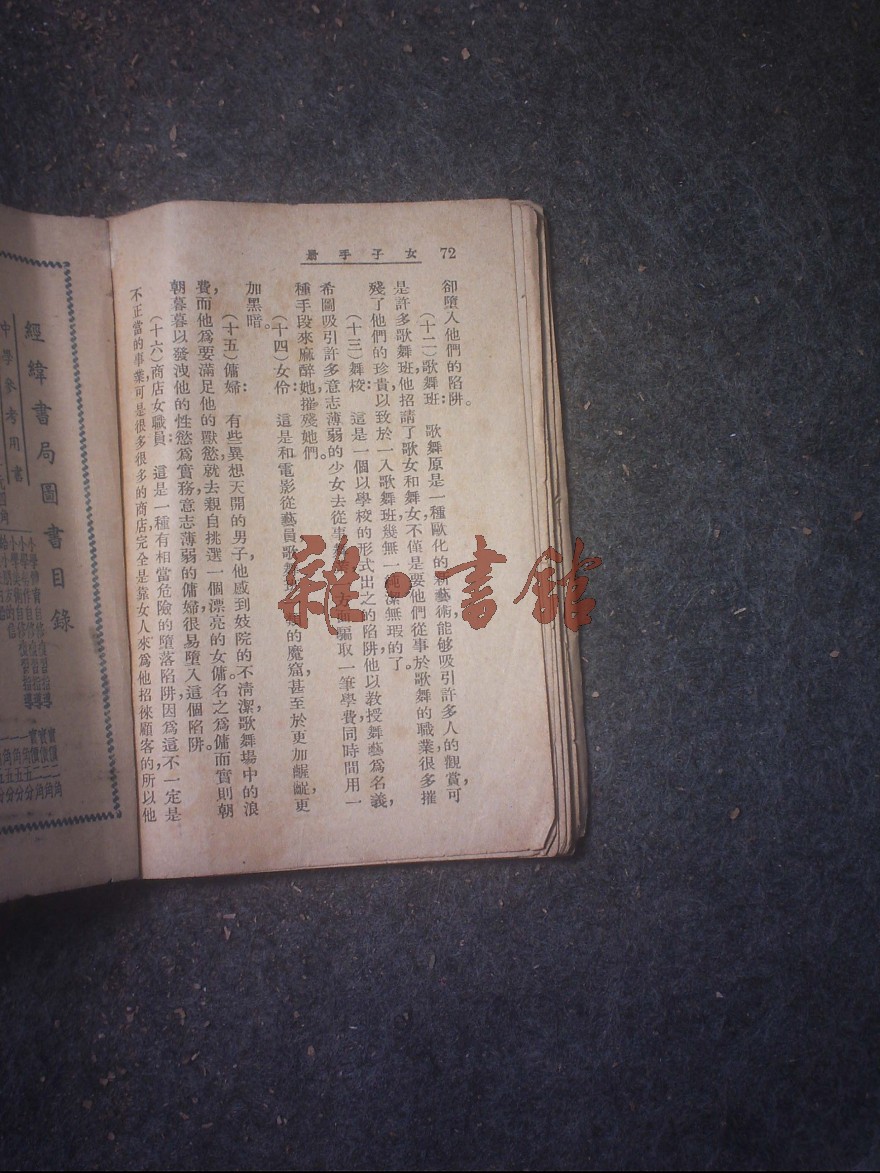 女子手冊 72
卻墮入他們的陷阱。
(十二)歌舞班: 歌舞原是一種歐化的新藝術,能够吸引許多人的觀賞,可
是許多歌舞班,他招請了歌女和舞女,不僅是要他們從事於歌舞的職業,很多摧
殘了他們的珍貴,以致於一入歌舞班,幾無一純潔無瑕的了。
(十三)舞校: 這是一個以學校的形式出之的陷阱,他以教授舞藝爲名義,
希圖吸引許多意志薄弱的少女去從事 騙取一筆學費,同時間用一
種手段來麻醉她,摧殘她們。
(十四)女伶: 這是和電影從藝員歌舞 的魔窟,甚至於更加齷齪,更
加黑暗。
(十五)傭婦: 有些異想天開的男子,他感到妓院的不清潔,歌舞場中的浪
費,而他爲要滿足他的獸慾,就去親自挑選一個漂亮的女傭,名之爲傭,而實則朝
朝暮暮以發洩他的性慾爲實務,意志薄弱的傭婦很易墮入這個陷阱。
(十六)商店女職員: 這是一種有相當危險的墮落陷阱,因爲這不一定是
不正當的事業,可是很多很多的商店,完全是靠女人來爲他招徠顧客的,所以他
經緯書局圖書目錄
中學參考用書
雜·書館